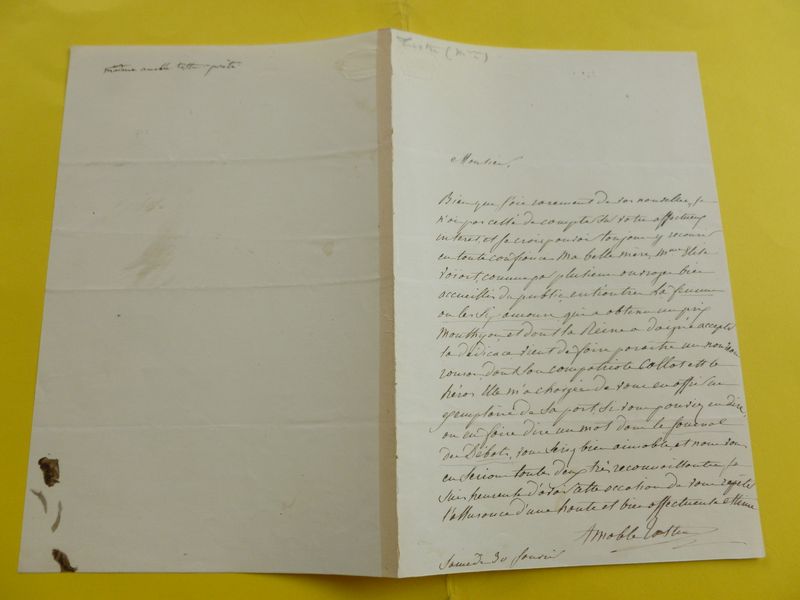 madame amable tastu poète
Tastu (Mme)
Monsieur,
Bien que j'aie rarement de vos nouvelles, je
n'ai pas cessé de compter sur votre affectueux
intérêt, et je crois pouvoir toujours y recourir
en toute confiance. Ma belle mère, Mme Elise
Voïart, connue par plusieurs ouvrages bien
accueillis du public, entr'autres La femme
ou les Six amours, qui a obtenu un prix
Monthyon, et dont la Reine a daigné accepter
la dédicace vient de faire paraître un nouveau
roman, dont son compatriote Callot est le
héros. Elle m'a chargée de vous en offrir un
exemplaire de sa part. Si vous pouviez en dire,
ou en faire dire un mot dans le Journal
des Débats, vous seriez bien aimable, et nous vous
en serions toutes deux très reconnaissantes. Je
suis heureuse d'avoir cette occasion de vous répéter
l'assurance d'une haute et bien affectueuse estime
Amable Tastu
Samedi 30